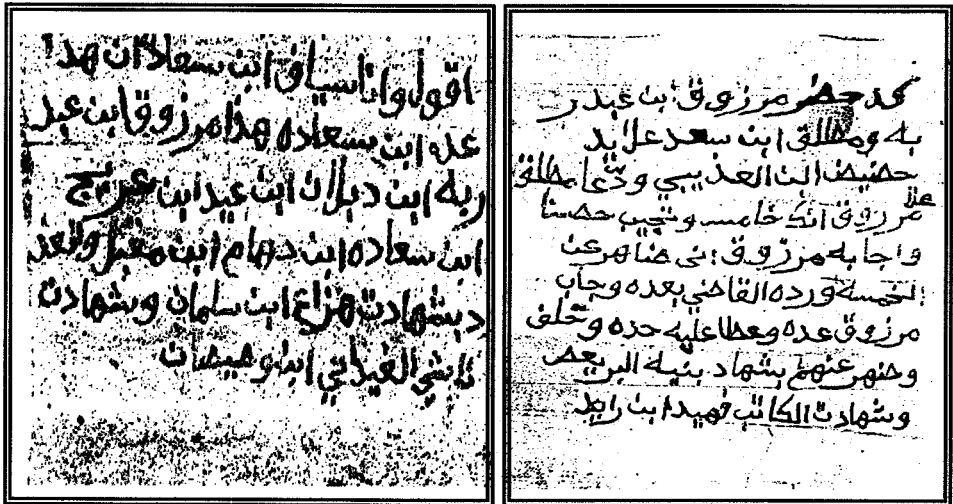 حضر مرزوق ابن عبدر
به ومطلق ابن سعد علا يد
ابن العذيبي ودعا مطلق
علا
مرزوق انك خامسه وتجيب حصتنا
واجابه مرزوق اني ضاهر عن
الخمسه ورده القاضي بعده وجاب
مرزوق عده وعطا عليه حده وحلف
وضهر عنهم بشهاد بنيه البريعص
وشهادت الكاتب فهيد ابن رابد
اقول وانا سياف ابن سعاد ان هذا
عده ابن سعاده هذا مرزوق ابن عبد
ربه ابن دبلان ابن عيد ابن عريج
ابن سعاده ابن دهام ابن مقبل
بشهادت هزاع ابن سلمان وشهادت
ابن وهيصان